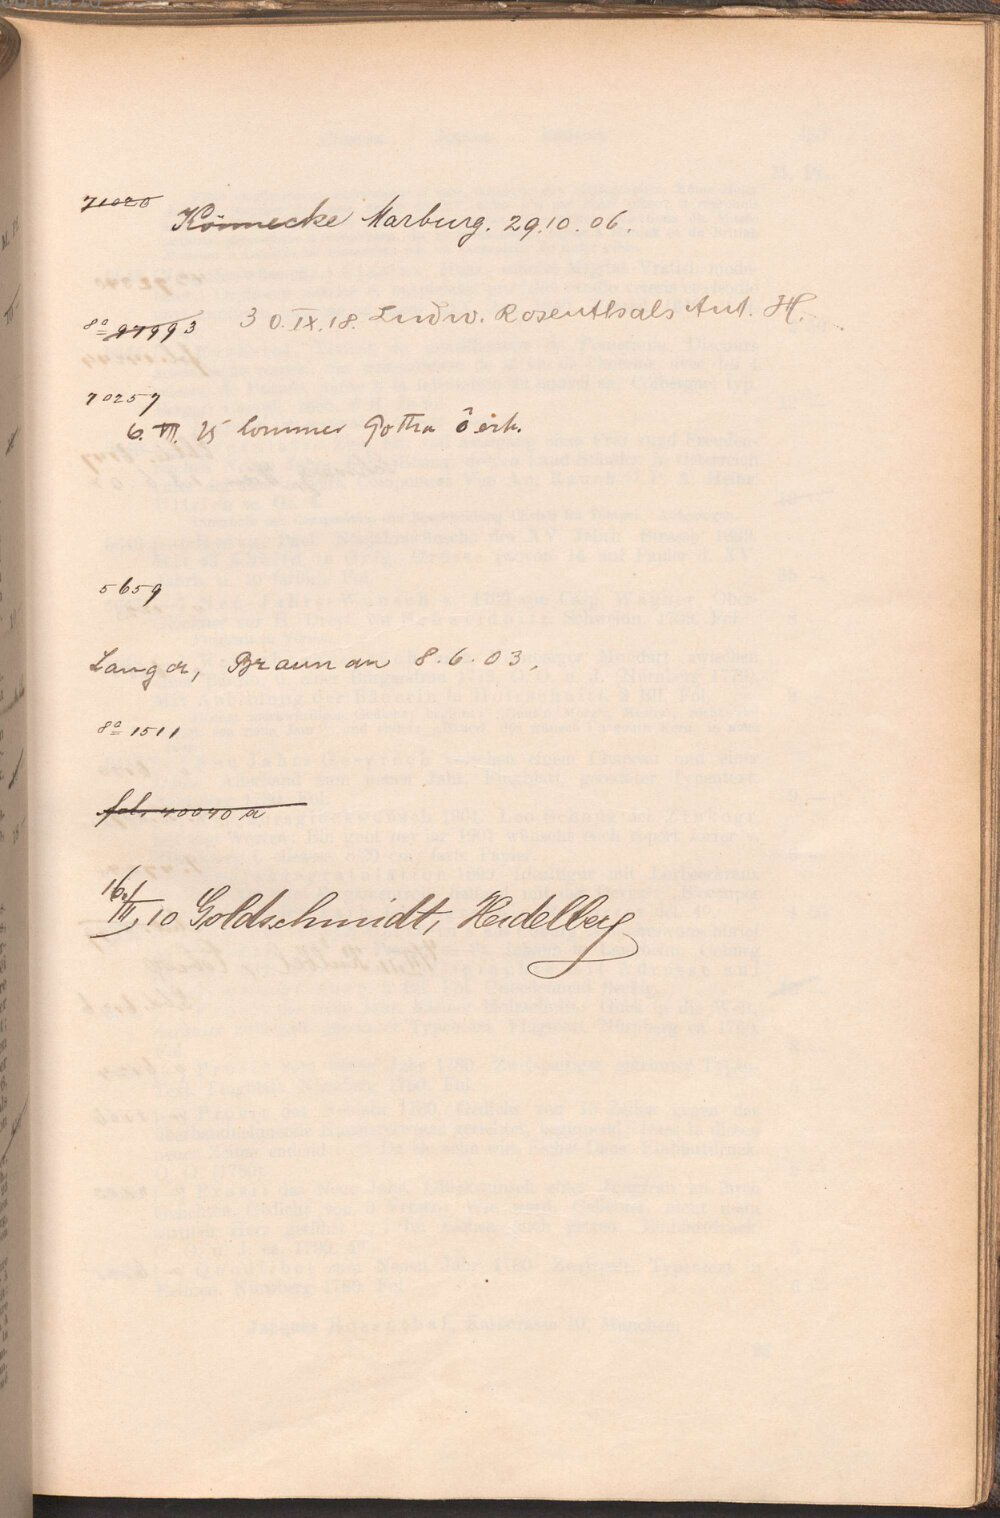 71020
Könnecke Marburg. 29.10.06.
8° 97993 30.IX.18. Ludw. Rosenthals Ant. H.
70257
6. VII. 25 Gotha
5659
Langer, Braunau 8.6.03.
8° 1511
fol. 40040 a
16./III. 10 Goldschmidt, Heidelberg